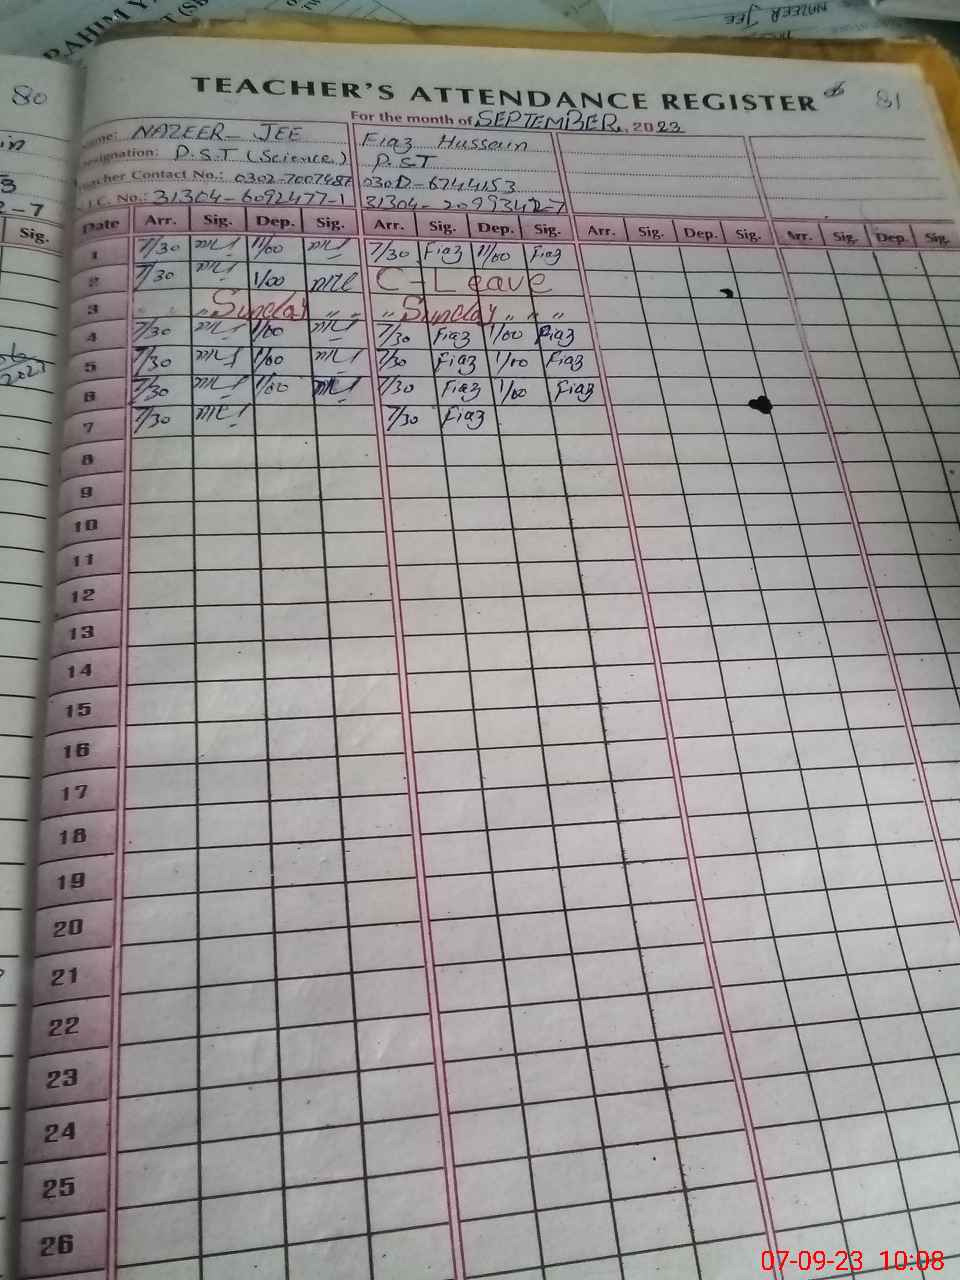 RAHIM Y
NAZEER JEE
80
TEACHER'S ATTENDANCE REGISTER
81
For the month of SEPTEMBER, 2023
Name: NAZEER- JEE Fiaz Hussain
Designation: P.S.T (Science) P.S.T
Teacher Contact No.: 0302-7007487 0300-6744153
C.I.C. No.: 31304-6092477-1 31304-
Sig.
Date Arr. Sig. Dep. Sig. Arr. Sig. Dep. Sig. Arr. Sig. Dep. Sig. Arr. Sig. Dep. Sig.
1 7/30 1/00 7/30 Fiaz 1/00 Fiaz
2 7/30 1/00 C-Leave
3 " " " Sunday " " " Sunday " " "
4 7/30 1/00 7/30 Fiaz 1/00 Fiaz
5 7/30 1/00 7/30 Fiaz 1/00 Fiaz
6 7/30 1/00 7/30 Fiaz 1/00 Fiaz
7 7/30 7/30 Fiaz
8
9
10
11
12
13
14
15
16
17
18
19
20
21
22
23
24
25
26
07-09-23 10:08